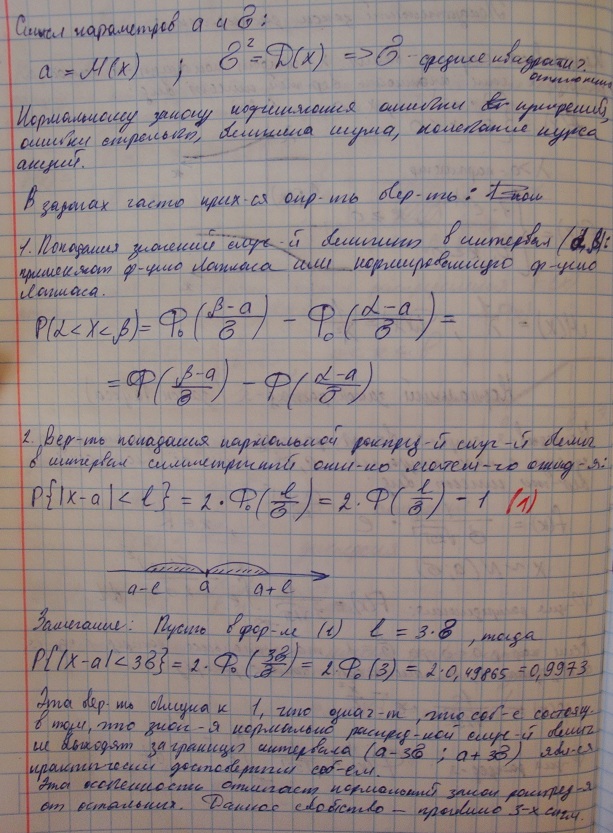 Смысл параметров a и σ:
a = M(x) ; σ² = D(x) => σ - среднее квадратич.
отклонение
Нормальному закону подчиняются ошибки измерений,
ошибки стрельбы, величина шума, колебание курса
акций.
В задачах часто прих-ся опр-ть вер-ть:
1. Попадания значений случ-й величины в интервал (α, β):
применяют ф-цию Лапласа или нормированную ф-цию
Лапласа.
P(α < X < β) = Φ₀((β-a)/σ) - Φ₀((α-a)/σ) =
= Φ((β-a)/σ) - Φ((α-a)/σ)
2. Вер-ть попадания нормальной распред-й случ-й велич
в интервал симметричный отн-но матем-го ожид-я:
P{|X-a| < l} = 2·Φ₀(l/σ) = 2·Φ(l/σ) - 1 (1)
a-l a a+l
Замечание: Пусть в фор-ле (1) l = 3·σ, тогда
P{|X-a| < 3σ} = 2·Φ₀(3σ/σ) = 2Φ₀(3) = 2·0,49865 = 0,9973
Эта вер-ть близка к 1, что означ-т, что соб-е состоящ-
в том, что знач-я нормально распред-ной случ-й велич
не выходят за границы интервала (a-3σ ; a+3σ) явл-ся
практически достоверным соб-ем.
Эта особенность отличает нормальный закон распред-я
от остальных. Данное свойство - правило 3-х сигм.